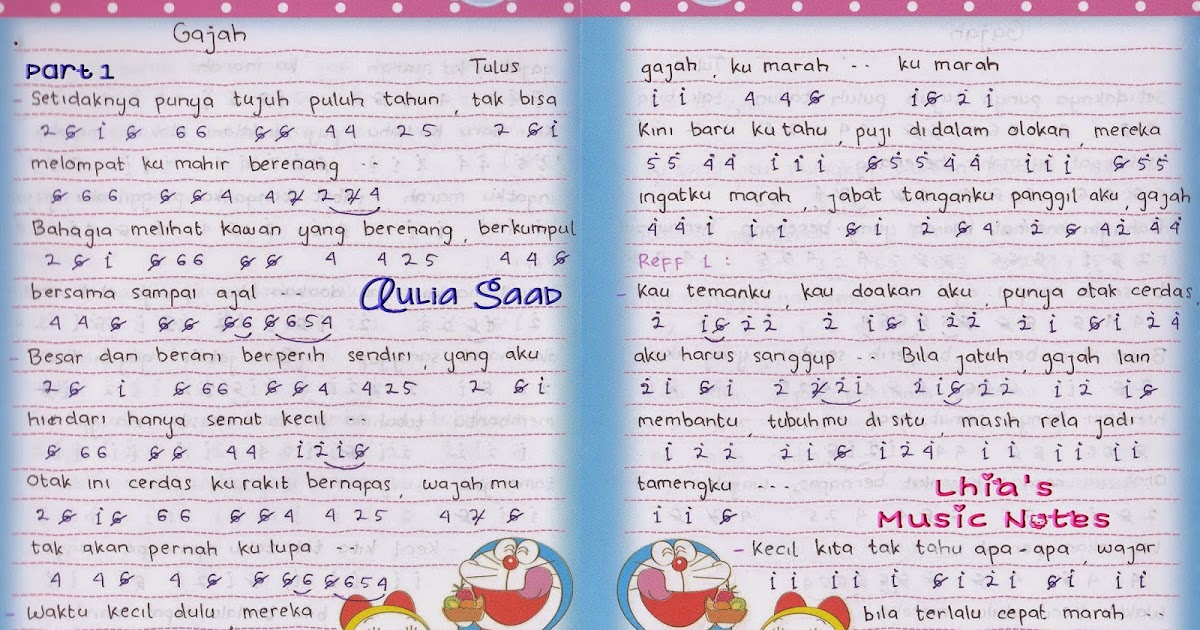 Gajah
Part 1 Tulus
- Setidaknya punya tujuh puluh tahun, tak bisa
2 6̸ i 6̸ 6 6 6̸ 6̸ 4 4 2 5 2 6̸ i
melompat ku mahir berenang ..
6̸ 6 6 6̸ 6̸ 4 4 2̸ 2 2̸ 4
Bahagia melihat kawan yang berenang, berkumpul
2 6̸ i 6̸ 6 6 6̸ 6̸ 4 4 2 5 4 4 6̸
bersama sampai ajal
4 4 6̸ 6̸ 6̸ 6̸ 6 6̸ 6 5 4
Qulia Saad
- Besar dan berani berperih sendiri, yang aku
2 6̸ i 6̸ 6 6 6̸ 6̸ 4 4 2 5 2 6̸ i
hindari hanya semut kecil
6̸ 6 6 6̸ 6̸ 4 4 i 2̇ i 6̸
Otak ini cerdas ku rakit bernapas, wajahmu
2 6̸ i 6̸ 6 6 6̸ 6̸ 4 4 2 5 4 2̸ 6̸
tak akan pernah kulupa ...
4 4 6̸ 4 6̸ 6̸ 6̸ 6 6̸ 6 5 4
- Waktu kecil dulu mereka
gajah, ku marah .. ku marah
i i 4 4 6̸ i 6̸ 2̇ i
Kini baru ku tahu, puji di dalam olokan, mereka
5̇ 5̇ 4̇ 4̇ i i i 6̸ 5̇ 5̇ 4̇ 4̇ i i i 6̸ 5̇ 5̇
ingatku marah, jabat tanganku panggil aku, gajah
4̇ 4̇ i i i i 6̸ i 2̇ 6̸ 4̇ 2̇ 6̸ 4̇ 2̇ 4̇ 4̇
Reff 1 :
- Kau temanku, kau doakan aku, punya otak cerdas
2̇ i 6̸ 2̇ 2̇ 2̇ i 6̸ i 2̇ 2̇ 2̇ i 6̸ i 2̇ 4̇
aku harus sanggup .. Bila jatuh, gajah lain
2̇ i 6̸ i 2̇ 2̸̇ 2̇ i 2̇ i 6̸ 2̇ 2̇ i 2̇ i 6̸
membantu, tubuhmu di situ, masih rela jadi
i 2̇ 2̇ 2̇ i 6̸ i 2̇ 4̇ i i i i i i
tamengku ....
i i 6̸
Lhia's
Music Notes
- Kecil kita tak tahu apa-apa, wajar
i i i i i 6̸ i 2̇ i 6̸ i i i
bila terlalu cepat marah